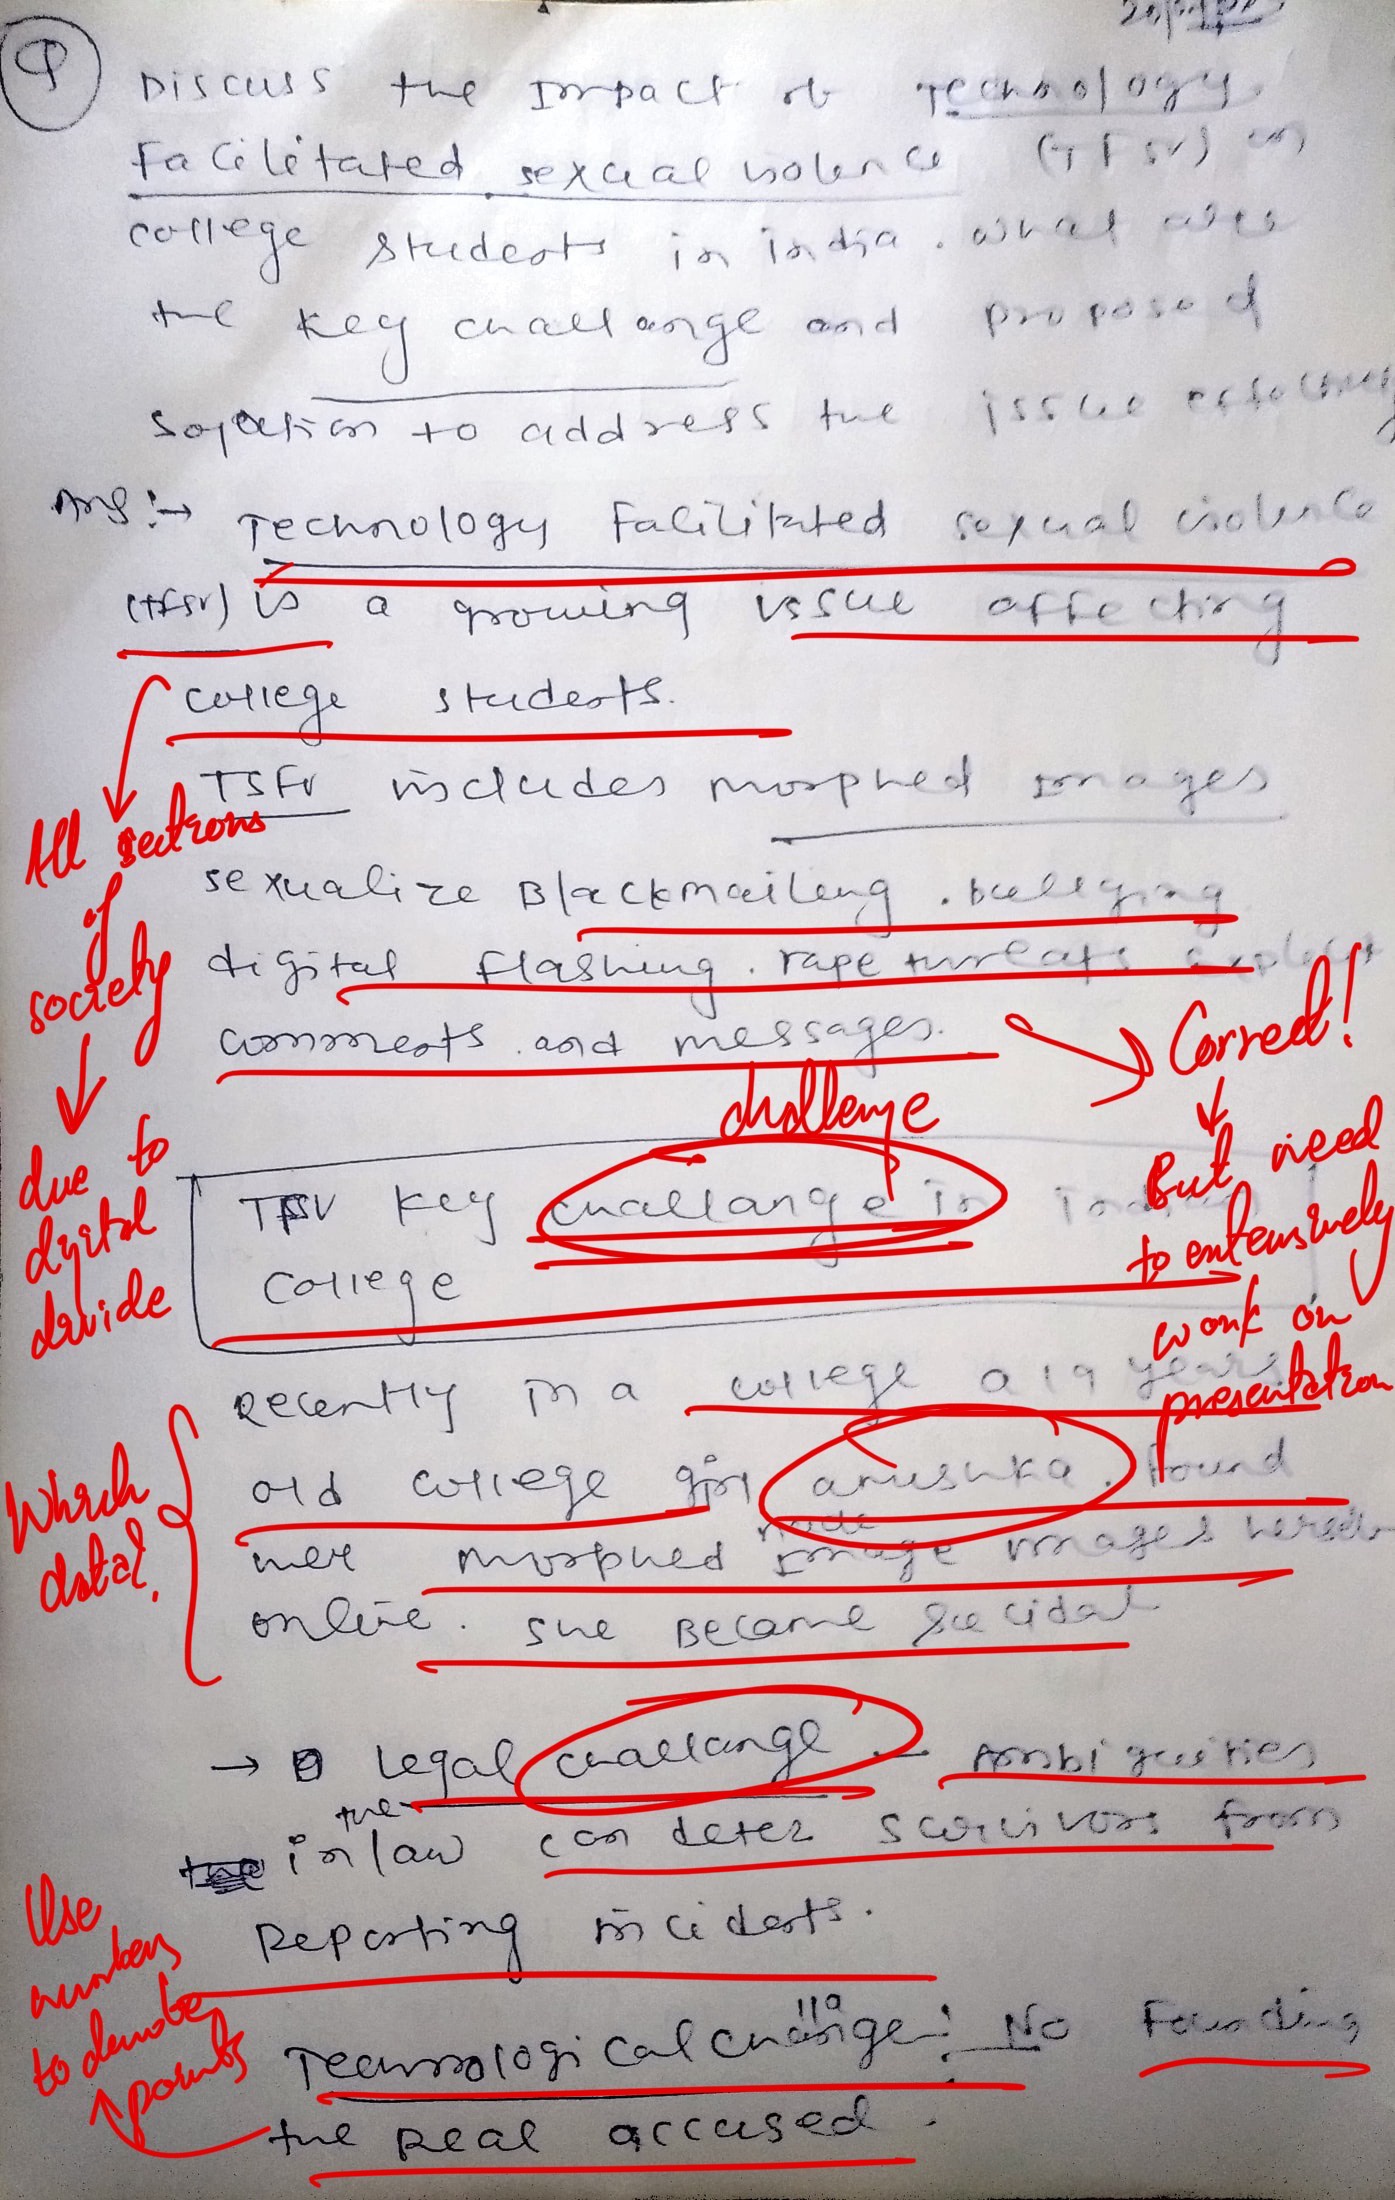 Q
Discuss the Impact of Technology
Facilitated sexual violence (TFSV) on
college students in india. what are
the key challange and proposed
solution to address the issue
Ans :→ Technology Facilitated sexual violence
(TFSV) is a growing issue affecting
college students.
TSFV includes morphed Images
sexualize Blackmaileng. bullying
digital flashing. rape threats explicit
comments. and messages.
All sections
of
society
due to
digital
divide
Correct!
But need
to extensively
work on
presentation
challenge
TFSV key challange in indian
college
Recently in a college a 19 years
old college girl anushka. Found
her morphed nude Image images herself
online. she Became Suicidal
Which
data?
→ Legal challange - Ambiguities
in the law can deter survivors from
Reporting incidents.
Use
numbers
to denote
points
Technological challange: No Founding
the real accused.